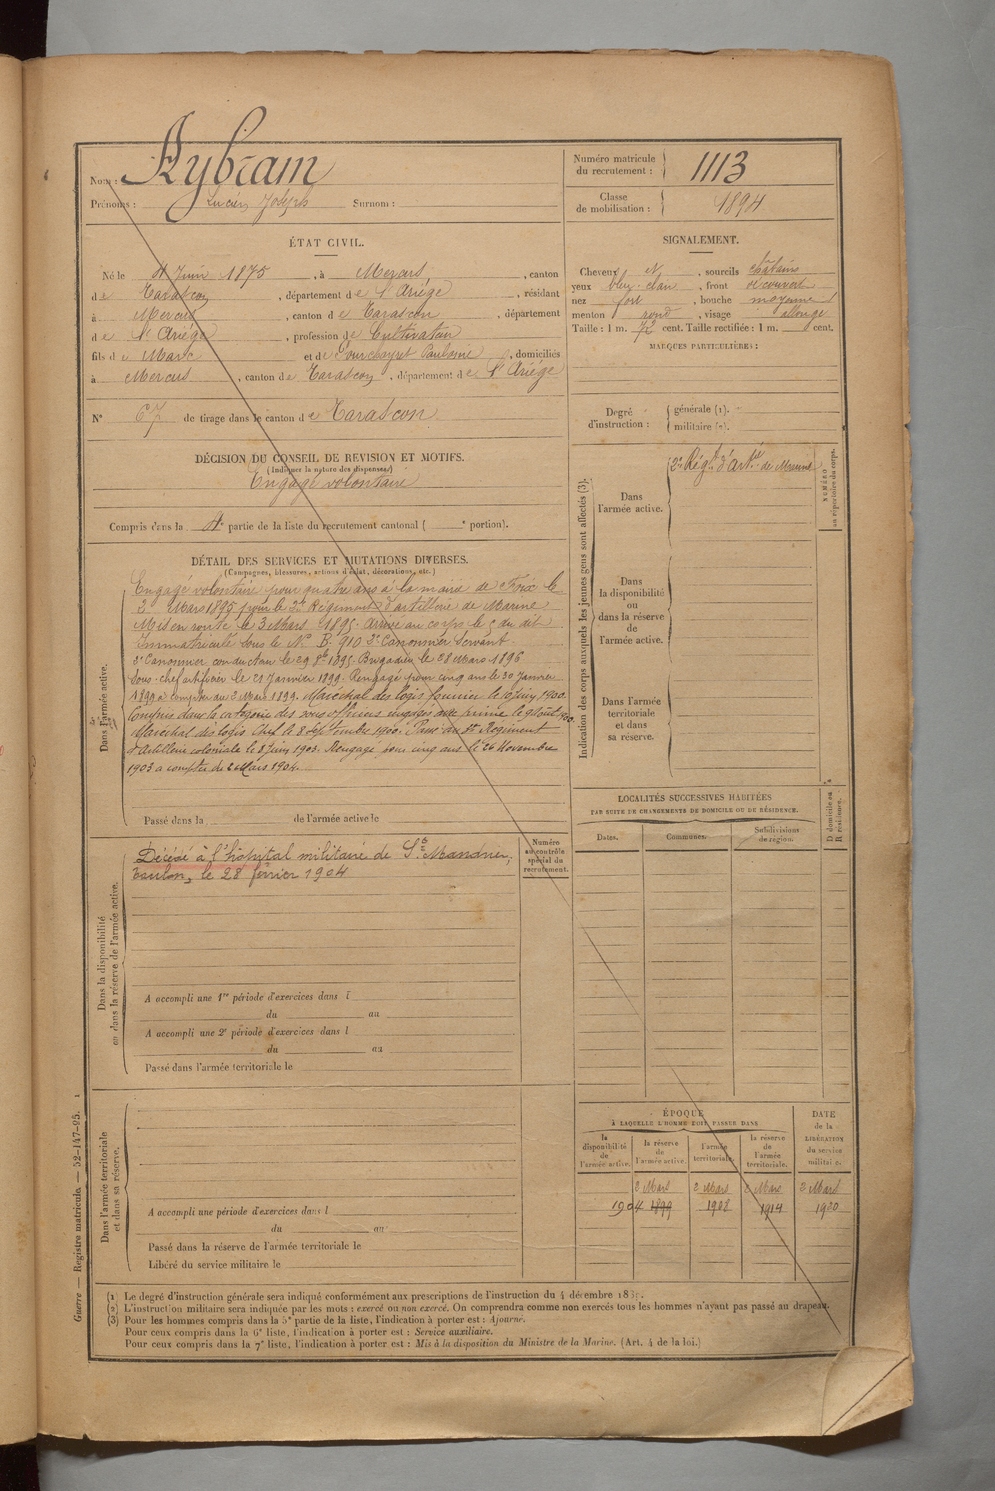 Nom : Aybram
Prénoms : Lucien Joseph Surnom :
Numéro matricule du recrutement : 1113
Classe de mobilisation : 1894
ÉTAT CIVIL.
Né le 4 Juin 1875, à Mercus, canton
de Tarascon, département de l'Ariége, résidant
à Mercus, canton de Tarascon, département
de l'Ariége, profession de Cultivateur
fils de Marc et de Pauline, domiciliés
à Mercus, canton de Tarascon, département de l'Ariége
N° 67 de tirage dans le canton de Tarascon
SIGNALEMENT.
Cheveux et, sourcils châtains
yeux bleu clair, front découvert
nez fort, bouche moyenne
menton rond, visage allongé
Taille : 1 m. 72 cent. Taille rectifiée : 1 m. cent.
MARQUES PARTICULIÈRES :
Degré d'instruction : générale (1).
militaire (2).
DÉCISION DU CONSEIL DE REVISION ET MOTIFS.
(Indiquer la nature des dispenses)
Engagé volontaire
Compris dans la 4e partie de la liste du recrutement cantonal ( e portion).
DÉTAIL DES SERVICES ET MUTATIONS DIVERSES.
(Campagnes, blessures, actions d'éclat, décorations, etc.)
Dans l'armée active.
Engagé volontaire pour quatre ans à la mairie de Foix le
2 Mars 1895 pour le 2e Régiment d'artillerie de Marine
Mis en route le 3 Mars 1895. Arrivé au corps le 5 du dit
Immatriculé sous le N° B. 910 2e Canonnier Servant
2e Canonnier conducteur le 29 8bre 1895. Brigadier le 28 Mars 1896
Sous-chef artificier le 21 Janvier 1899. Rengagé pour cinq ans le 30 Janvier
1899 à compter du 2 Mars 1899. Maréchal des logis fourrier le 10 Juin 1900.
Compris dans la catégorie des sous officiers rengagés avec prime le 9 Août 1900.
Maréchal des logis Chef le 8 Septembre 1900. Passé au Régiment
d'Artillerie coloniale le 8 Juin 1903. Rengagé pour cinq ans le 26 Novembre
1903 à compter du 2 Mars 1904.
Passé dans la de l'armée active le
Dans la disponibilité ou dans la réserve de l'armée active.
Décédé à l'hôpital militaire de St Mandrier,
Toulon, le 28 février 1904
Numéro au contrôle spécial du recrutement.
A accompli une 1re période d'exercices dans l
du au
A accompli une 2e période d'exercices dans l
du au
Passé dans l'armée territoriale le
Dans l'armée territoriale et dans sa réserve.
A accompli une période d'exercices dans l
du au
Passé dans la réserve de l'armée territoriale le
Libéré du service militaire le
Indication des corps auxquels les jeunes gens sont affectés (3).
NUMÉRO au répertoire du corps.
Dans l'armée active.
2e Régt d'Artie de Marine
Dans la disponibilité ou dans la réserve de l'armée active.
Dans l'armée territoriale et dans sa réserve.
LOCALITÉS SUCCESSIVES HABITÉES
PAR SUITE DE CHANGEMENTS DE DOMICILE OU DE RÉSIDENCE.
Dates. Communes. Subdivisions de région.
D domicile ou R résidence.
ÉPOQUE
À LAQUELLE L'HOMME DOIT PASSER DANS
la disponibilité de l'armée active.
la réserve de l'armée active.
l'armée territoriale.
la réserve de l'armée territoriale.
DATE de la LIBÉRATION du service militaire.
2 Mars 2 Mars 2 Mars 2 Mars
1904 1899 1908 1914 1920
(1) Le degré d'instruction générale sera indiqué conformément aux prescriptions de l'instruction du 4 décembre
(2) L'instruction militaire sera indiquée par les mots : exercé ou non exercé. On comprendra comme non exercés tous les hommes n'ayant pas passé au drapeau.
(3) Pour les hommes compris dans la 5e partie de la liste, l'indication à porter est : Ajourné.
Pour ceux compris dans la 6e liste, l'indication à porter est : Service auxiliaire.
Pour ceux compris dans la 7e liste, l'indication à porter est : Mis à la disposition du Ministre de la Marine. (Art. 4 de la loi.)
Guerre — Registre matricule. — 52-147-95.